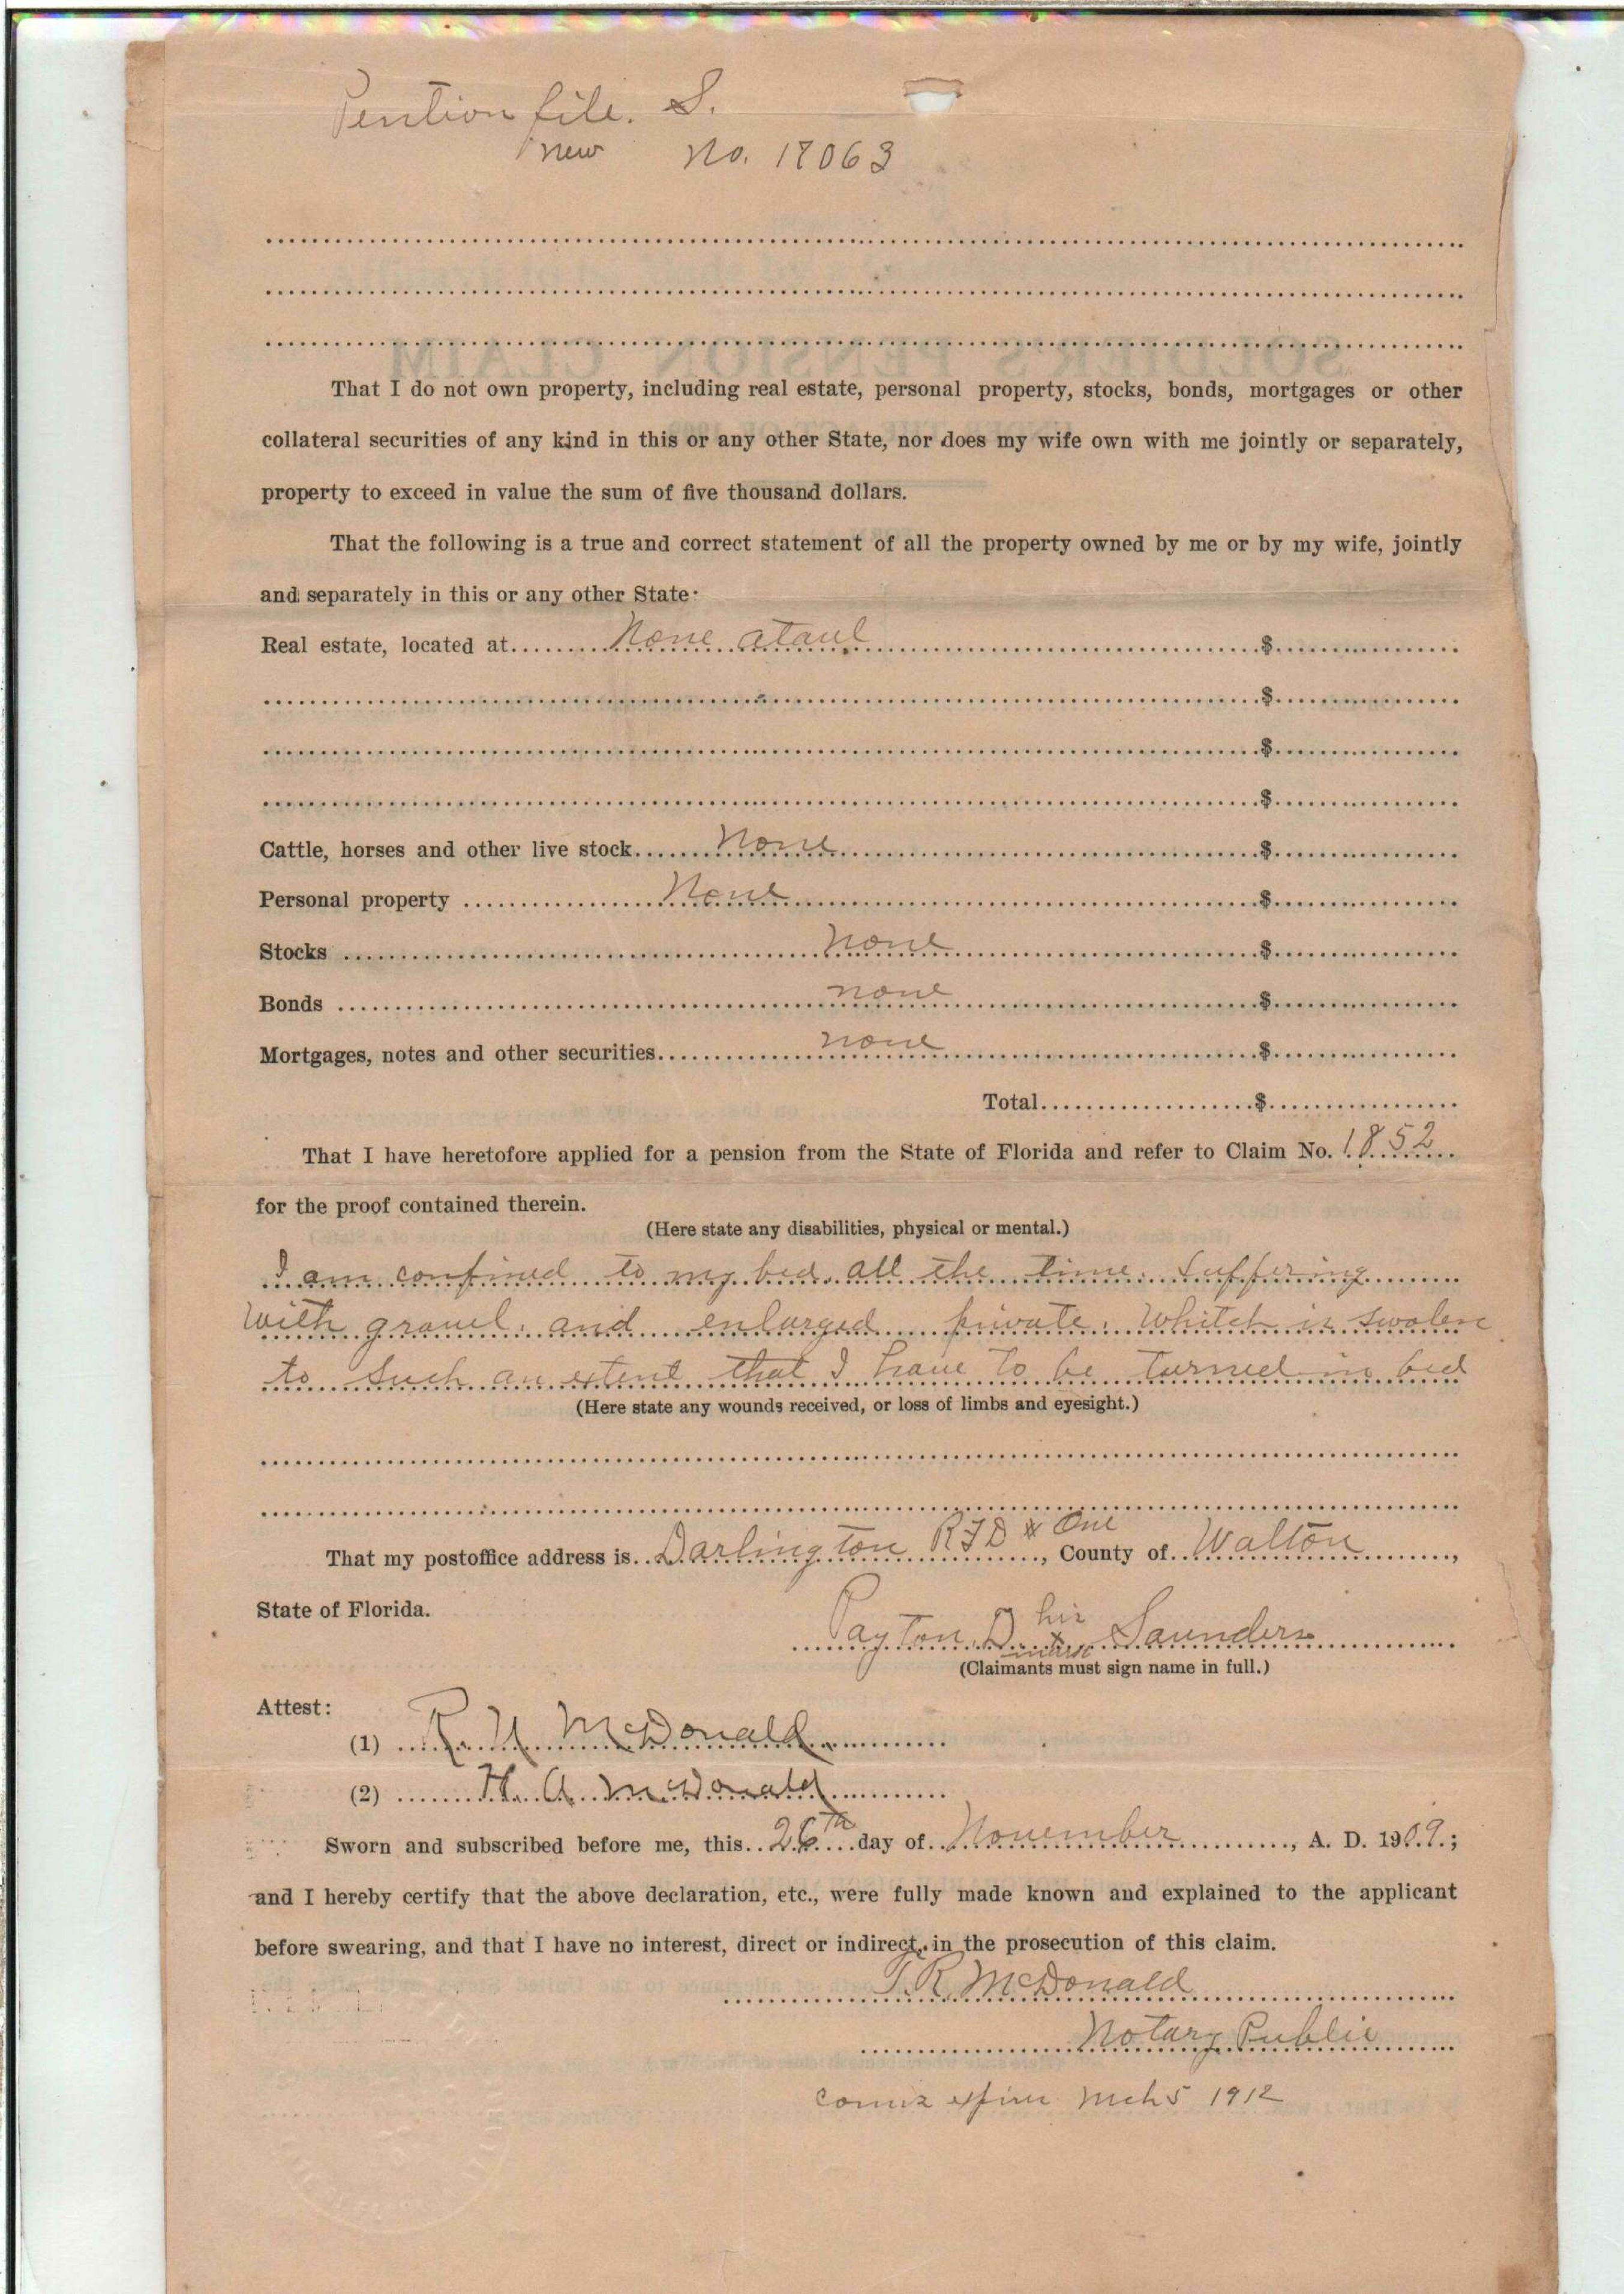 Pention file. S.
new No. 18063
That I do not own property, including real estate, personal property, stocks, bonds, mortgages or other
collateral securities of any kind in this or any other State, nor does my wife own with me jointly or separately,
property to exceed in value the sum of five thousand dollars.
That the following is a true and correct statement of all the property owned by me or by my wife, jointly
and separately in this or any other State:
Real estate, located at None ataul $
$
$
$
Cattle, horses and other live stock None $
Personal property None $
Stocks none $
Bonds none $
Mortgages, notes and other securities none $
Total $
That I have heretofore applied for a pension from the State of Florida and refer to Claim No. 1852
for the proof contained therein.
(Here state any disabilities, physical or mental.)
I am confined to my bed all the time. Suffering
with gravel. and enlarged private. Whitch is swolen
to such an extent that I have to be turned in bed
(Here state any wounds received, or loss of limbs and eyesight.)
That my postoffice address is Darlington RFD # One, County of Walton,
State of Florida.
Payton D his x mark Saunders
(Claimants must sign name in full.)
Attest:
(1) R. U. McDonald
(2) H. A. McDonald
Sworn and subscribed before me, this 26th day of November, A. D. 1909;
and I hereby certify that the above declaration, etc., were fully made known and explained to the applicant
before swearing, and that I have no interest, direct or indirect, in the prosecution of this claim.
T. R. McDonald
Notary Public
Comis expire Mch 5 1912